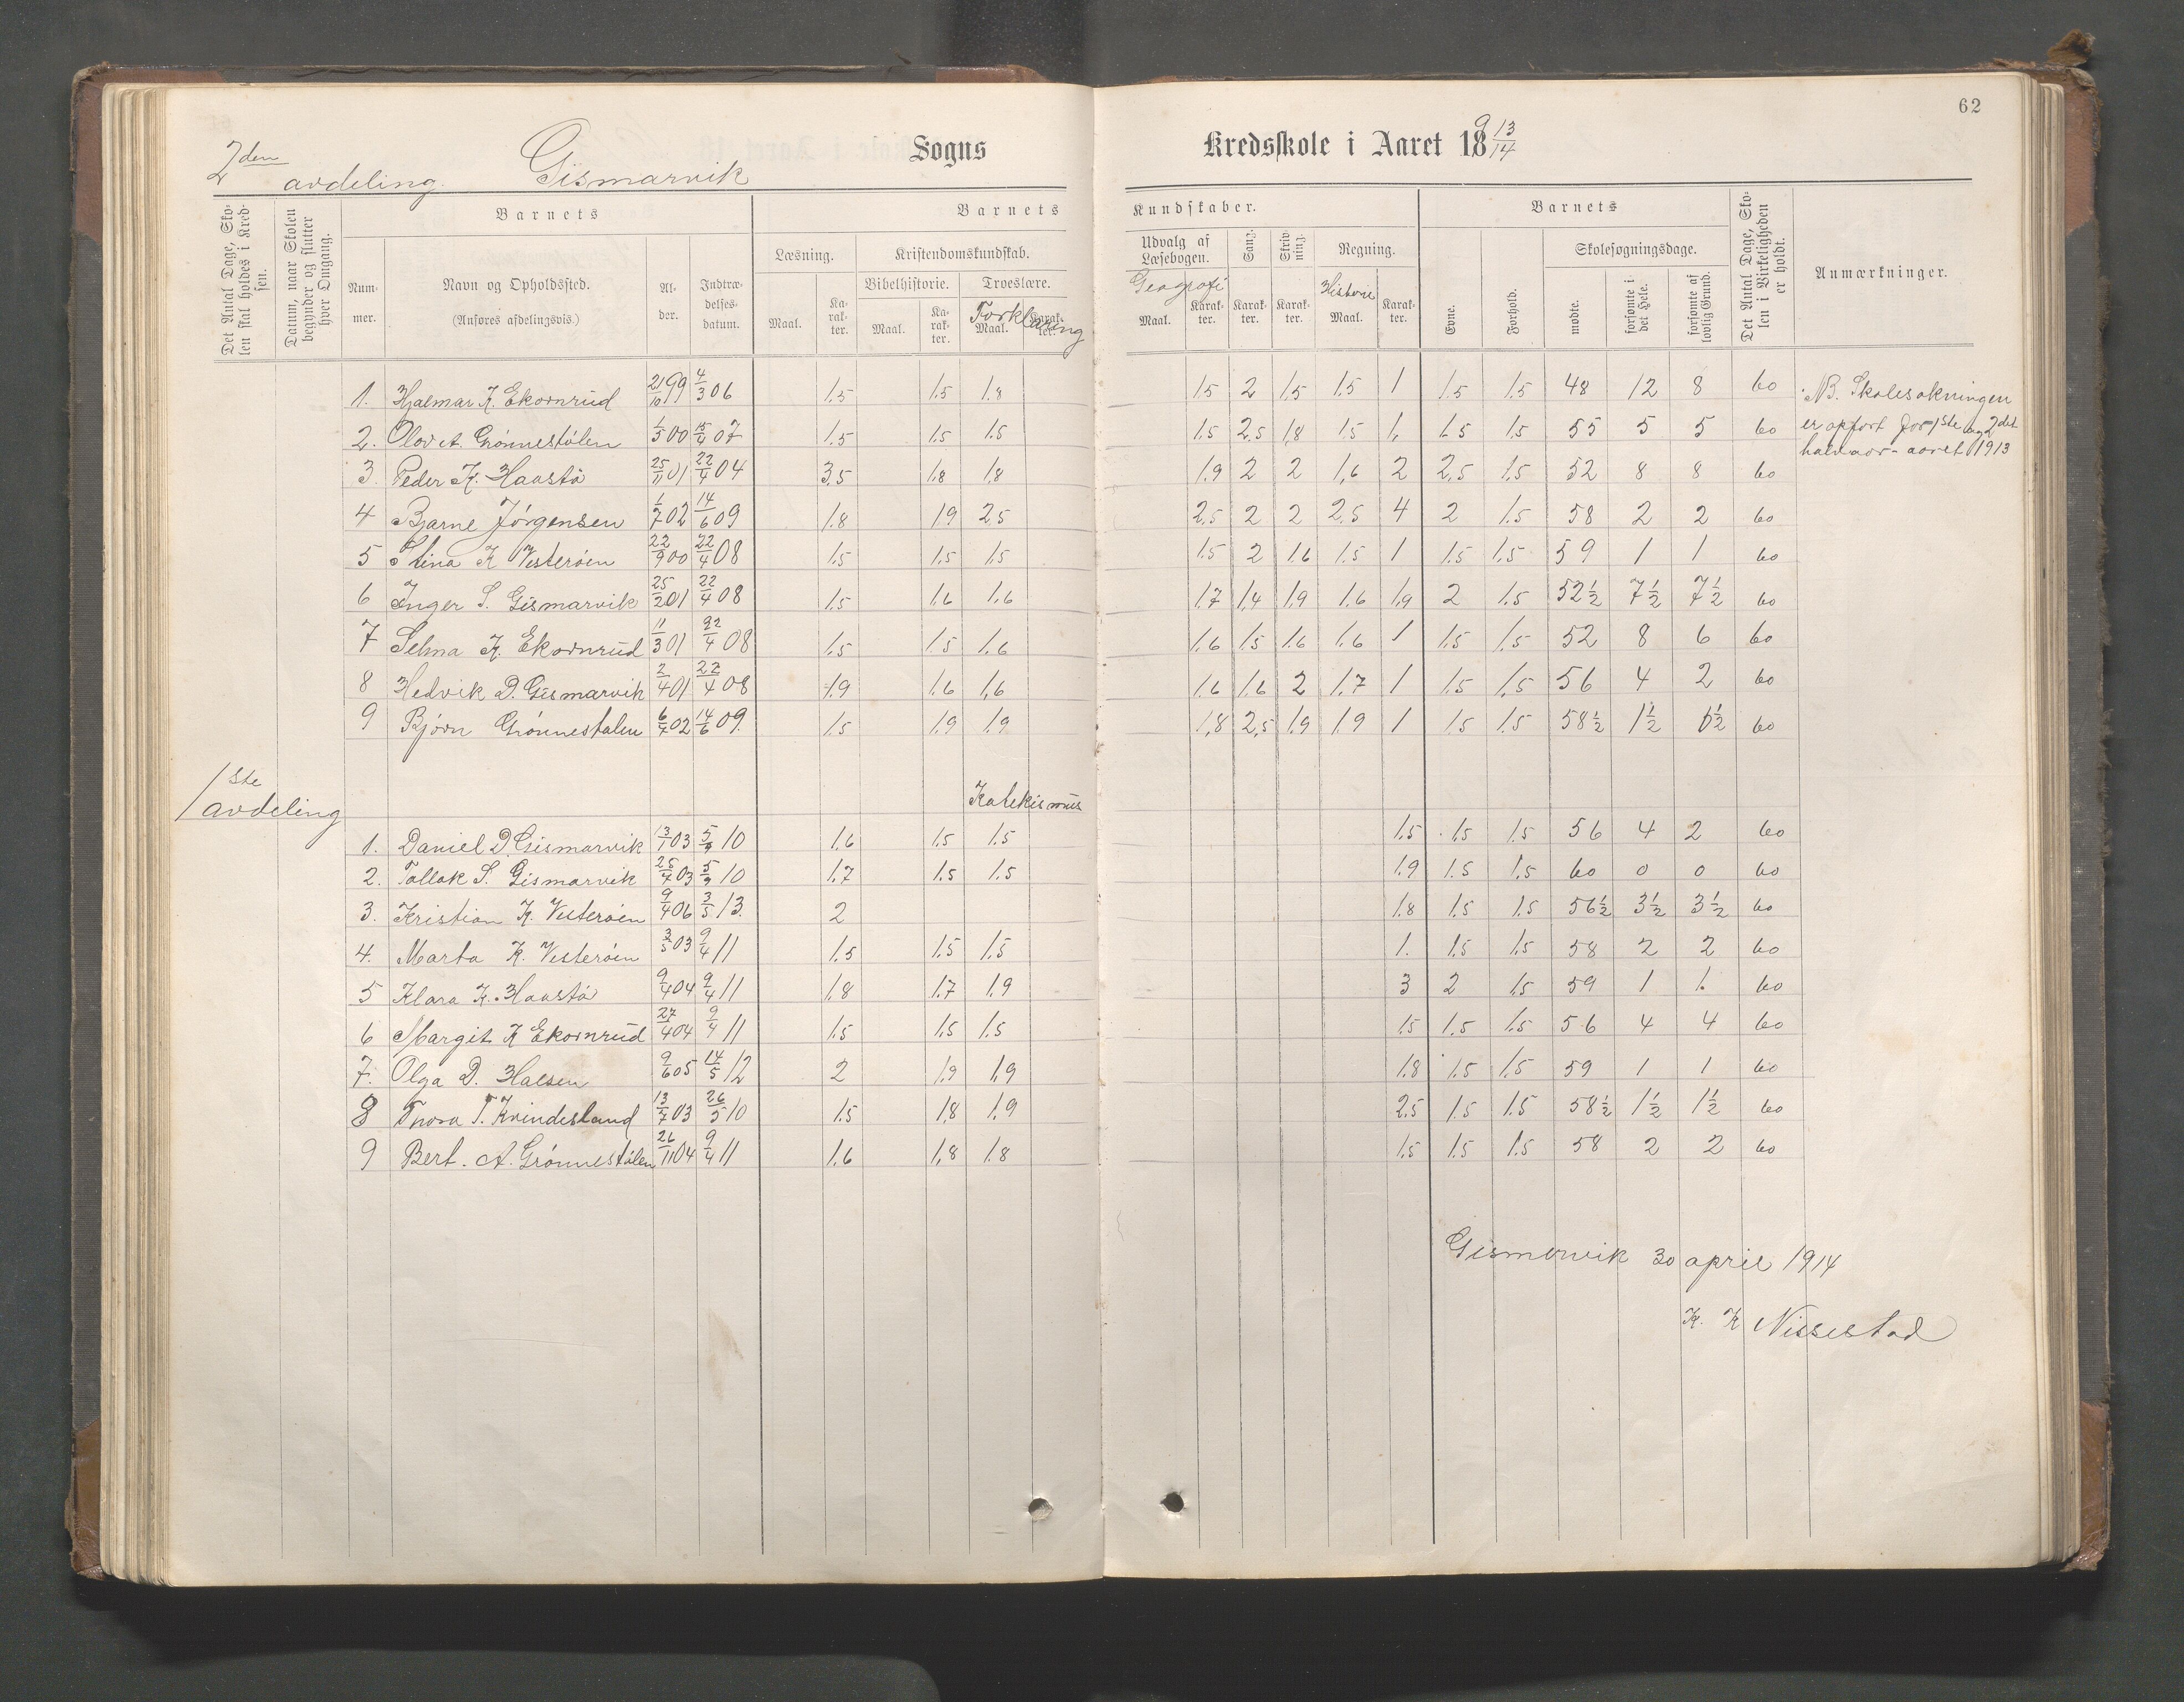 62
2den avdeling. Gismarvik Sogns Kredsskole i Aaret 1913/14
Det Antal Dage, Skolen skal holdes i Kredsen. Datum, naar Skolen begynder og slutter hver Omgang. Barnets Barnets Kundskaber. Barnets Det Antal Dage, Skolen i Virkeligheden er holdt. Anmærkninger.
Læsning. Kristendomskundskab. Udvalg af Læsebogen. Sang. Skrivning. Regning. Skolesøgningsdage.
Nummer. Navn og Opholdssted. (Anføres afdelingsvis.) Alder. Indtrædelsesdatum. Bibelhistorie. Troeslære. Geografi Historie Evne. Forhold. mødte. forsømte i det Hele. forsømte af lovlig Grund.
Maal. Karakter. Maal. Karakter. Forklaring Maal. Karakter. Maal. Karakter. Karakter. Karakter. Maal. Karakter.
1. Hjalmar K. Ekornrud 21/10 99 4/3 06 1.5 1.5 1.8 1.5 2 1.5 1.5 1 1.5 1.5 48 12 8 60 NB. Skolesøkningen
2. Olov A. Grönnestölen 1/5 00 15/4 07 1.5 1.5 1.5 1.5 2,5 1,8 1.5 1, 1.5 1.5 55 5 5 60 er opført for 1ste og 2det
3. Peder K. Haastö 25/11 01 22/4 04 3,5 1.8 1.8 1.9 2 2 1,6 2 2,5 1.5 52 8 8 60 halvaar - aaret 1913
4 Bjarne Jörgensen 1/7 02 14/6 09 1.8 1.9 2.5 2.5 2 2 2.5 4 2 1.5 58 2 2 60
5 Stina K Vesteröen 22/9 00 22/4 08 1.5 1.5 1.5 1.5 2 1.6 1.5 1 1.5 1.5 59 1 1 60
6 Inger S. Gismarvik 25/2 01 22/4 08 1.5 1.6 1.6 1.7 1,4 1.9 1.6 1,9 2 1.5 52½ 7½ 7½ 60
7 Selma K. Ekornrud 11/3 01 22/4 08 1.5 1.5 1.6 1.6 1.5 1.6 1.6 1 1.5 1.5 52 8 6 60
8 Hedvik D. Gismarvik 2/4 01 22/4 08 1.9 1.6 1,6 1.6 1.6 2 1.7 1 1.5 1.5 56 4 2 60
9 Bjørn Grönnestølen 6/4 02 14/6 09. 1.5 1.9 1.9 1,8 2,5 1.9 1.9 1 1.5 1.5 58½ 1½ ½ 60
1ste avdeling Katekismus
1. Daniel D. Gismarvik 13/1 03 5/9 10 1.6 1.5 1.5 1.5 1.5 1.5 56 4 2 60
2. Tallak S. Gismarvik 25/4 03 5/9 10 1.7 1.5 1.5 1.9 1.5 1.5 60 0 0 60
3. Kristian K. Vesteröen 9/4 06 3/5 13. 2 1.8 1.5 1.5 56½ 3½ 3½ 60
4. Marta K. Vesteröen 3/5 03 9/4 11 1.5 1.5 1.5 1. 1.5 1.5 58 2 2 60
5 Klara K. Haastö 9/4 04 9/4 11 1.8 1.7 1.9 3 2 1.5 59 1 1. 60
6 Margit K Ekornrud 27/4 04 9/4 11 1.5 1.5 1.5 1.5 1.5 1.5 56 4 4 60
7. Olga D. Halsen 9/6 05 14/5 12 2 1.9 1.9 1.8 1.5 1.5 59 1 1 60
8 Thora T. Kvindesland 13/7 03 26/5 10 1.5 1.8 1.9 2.5 1.5 1.5 58½ 1½ 1½ 60
9 Bert. A. Grönnestölen 26/11 04 9/4 11 1.6 1,8 1.8 1.5 1.5 1.5 58 2 2 60
Gismervik 30 april 1914
K. K Nissestad